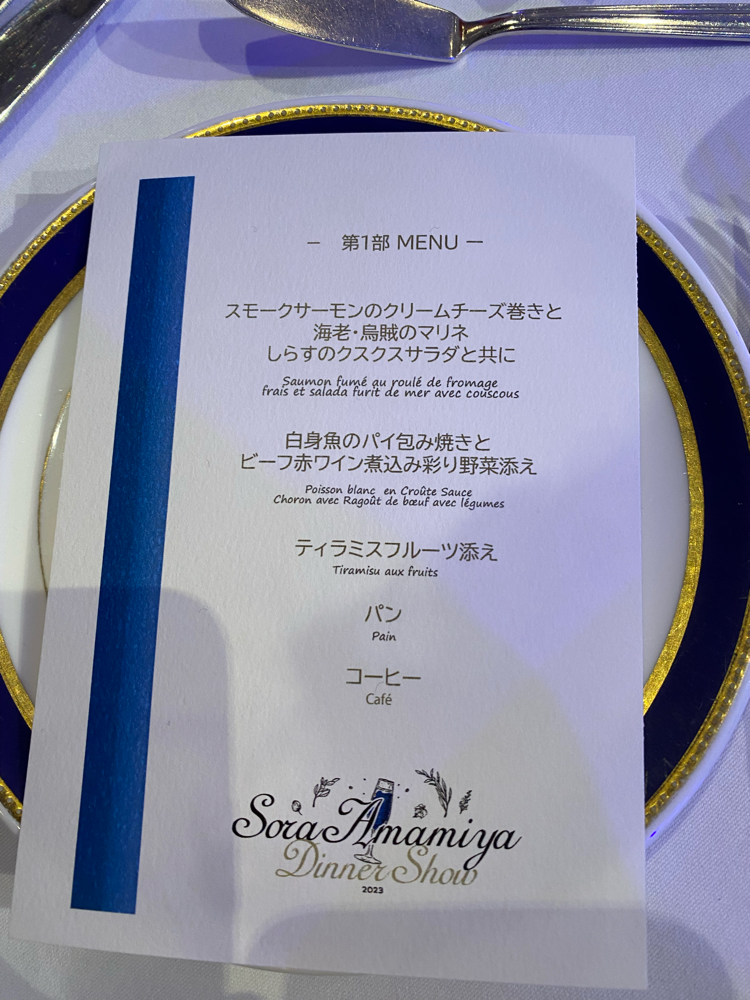 － 第1部 MENU ー
スモークサーモンのクリームチーズ巻きと
海老・烏賊のマリネ
しらすのクスクスサラダと共に
Saumon fumé au roulé de fromage
frais et salada furit de mer avec couscous
白身魚のパイ包み焼きと
ビーフ赤ワイン煮込み彩り野菜添え
Poisson blanc en Croûte Sauce
Choron avec Ragoût de bœuf avec légumes
ティラミスフルーツ添え
Tiramisu aux fruits
パン
Pain
コーヒー
Café
Sora Amamiya
Dinner Show
2023